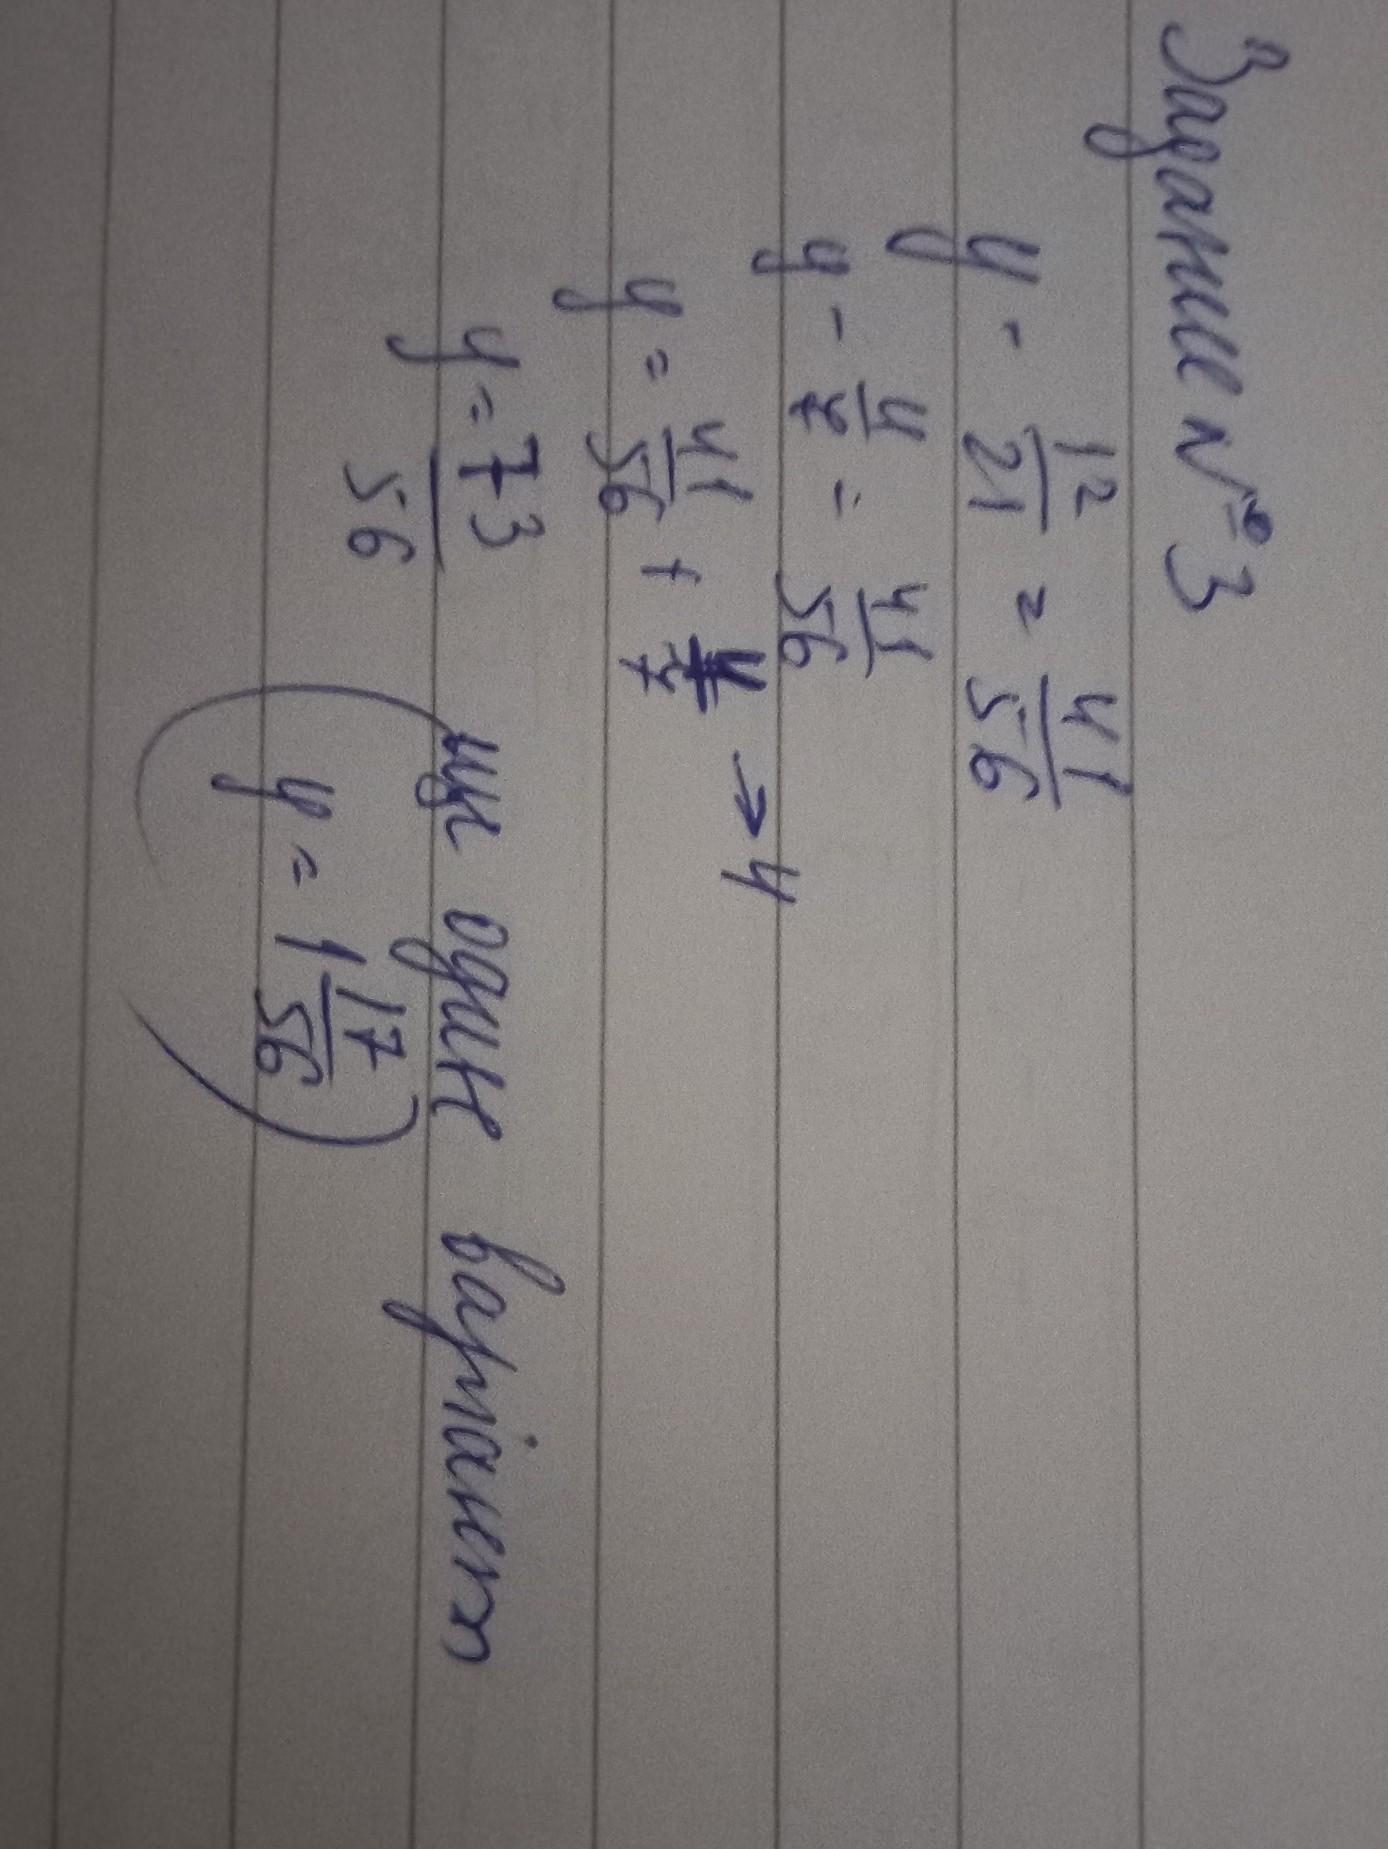 Задание №3
y - 12/21 = 41/56
y - 4/7 = 41/56
y = 41/56 + 4/7 → 4
y = 73/56
ще один варіант
y = 1 17/56